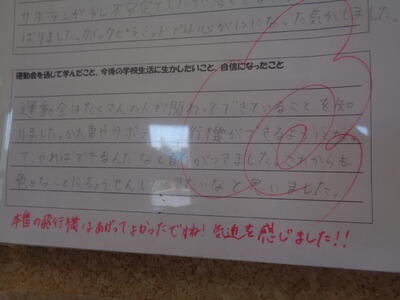 サボテンが少し不安定でしたが
ばりました。クイックピラミッドでは心が1つになった気がしました。
運動会を通じて学んだこと、今後の学校生活に生かしたいこと、自信になったこと
運動会はたくさんの人が関わってできていることを知
りました。かた車やサボテン 行機ができるように
て、やればできるんだなと自しんがつきました。これからも
色々なことにちょうせんし きたいなと思いました。
本番の飛行機はあがってよかったですね!気迫を感じました!!